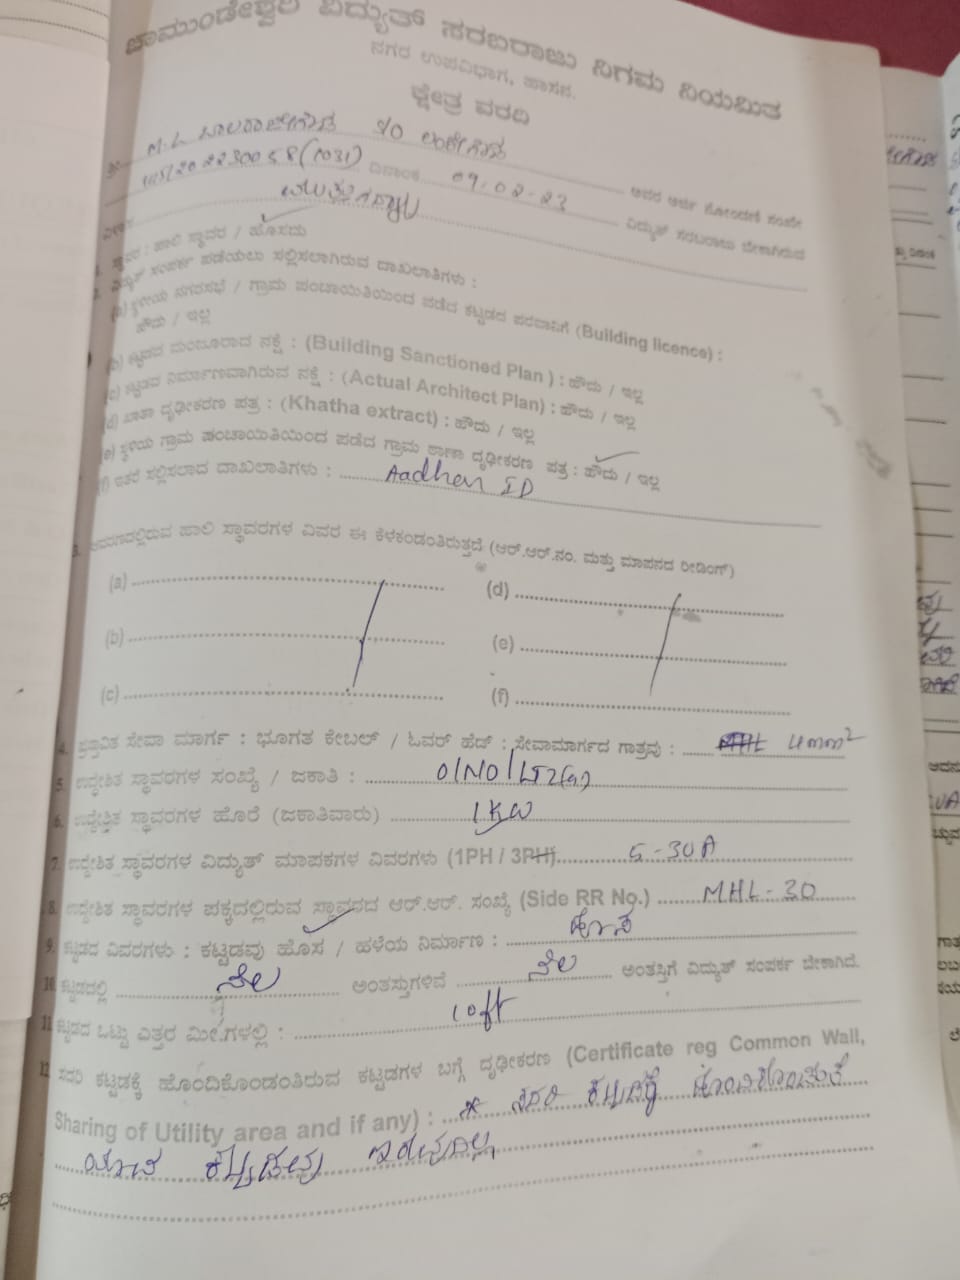 ಚಾಮುಂಡೇಶ್ವರಿ ವಿದ್ಯುತ್ ಸರಬರಾಜು ನಿಗಮ ನಿಯಮಿತ
ನಗರ ಉಪವಿಭಾಗ, ಹಾಸನ.
ಕ್ಷೇತ್ರ ವರದಿ
ಶ್ರೀ M.L ಬಾಲರಾಜೇಗೌಡ S/O ಲಕ್ಕೇಗೌಡ ಅವರ ಅರ್ಜಿ ನೋಂದಣಿ ಸಂಖ್ಯೆ
ದಿನಾಂಕ 09-02-23 ವಿದ್ಯುತ್ ಸರಬರಾಜು ಬೇಕಾಗಿರುವ
ವಿಳಾಸ
1. ಸ್ಥಾವರ : ಹಾಲಿ ಸ್ಥಾವರ / ಹೊಸದು
2. ವಿದ್ಯುತ್ ಸಂಪರ್ಕ ಪಡೆಯಲು ಸಲ್ಲಿಸಲಾಗಿರುವ ದಾಖಲಾತಿಗಳು :
(a) ಸ್ಥಳೀಯ ನಗರಸಭೆ / ಗ್ರಾಮ ಪಂಚಾಯಿತಿಯಿಂದ ಪಡೆದ ಕಟ್ಟಡದ ಪರವಾನಿಗೆ (Building licence) :
ಹೌದು / ಇಲ್ಲ
(b) ಕಟ್ಟಡದ ಮಂಜೂರಾದ ನಕ್ಷೆ : (Building Sanctioned Plan ) : ಹೌದು / ಇಲ್ಲ
(c) ಕಟ್ಟಡದ ನಿರ್ಮಾಣವಾಗಿರುವ ನಕ್ಷೆ : (Actual Architect Plan) : ಹೌದು / ಇಲ್ಲ
(d) ಖಾತಾ ದೃಢೀಕರಣ ಪತ್ರ : (Khatha extract) : ಹೌದು / ಇಲ್ಲ
(e) ಸ್ಥಳೀಯ ಗ್ರಾಮ ಪಂಚಾಯಿತಿಯಿಂದ ಪಡೆದ ಗ್ರಾಮ ಠಾಣಾ ದೃಢೀಕರಣ ಪತ್ರ : ಹೌದು / ಇಲ್ಲ
(f) ಇತರೆ ಸಲ್ಲಿಸಲಾದ ದಾಖಲಾತಿಗಳು : Aadhar ID
3. ಆವರಣದಲ್ಲಿರುವ ಹಾಲಿ ಸ್ಥಾವರಗಳ ವಿವರ ಈ ಕೆಳಕಂಡಂತಿರುತ್ತದೆ (ಆರ್.ಆರ್.ನಂ. ಮತ್ತು ಮಾಪನದ ರೀಡಿಂಗ್)
(a) (d)
(b) (e)
(c) (f)
4. ಪ್ರಸ್ತಾವಿತ ಸೇವಾ ಮಾರ್ಗ : ಭೂಗತ ಕೇಬಲ್ / ಓವರ್ ಹೆಡ್ : ಸೇವಾಮಾರ್ಗದ ಗಾತ್ರವು : 4mm²
5. ಉದ್ದೇಶಿತ ಸ್ಥಾವರಗಳ ಸಂಖ್ಯೆ / ಜಕಾತಿ : 01NO/LT2(a)
6. ಉದ್ದೇಶಿತ ಸ್ಥಾವರಗಳ ಹೊರೆ (ಜಕಾತಿವಾರು) 1KW
7. ಉದ್ದೇಶಿತ ಸ್ಥಾವರಗಳ ವಿದ್ಯುತ್ ಮಾಪಕಗಳ ವಿವರಗಳು (1PH / 3PH) 5-30A
8. ಉದ್ದೇಶಿತ ಸ್ಥಾವರಗಳ ಪಕ್ಕದಲ್ಲಿರುವ ಸ್ಥಾವರದ ಆರ್.ಆರ್. ಸಂಖ್ಯೆ (Side RR No.) MHL-30
9. ಕಟ್ಟಡದ ವಿವರಗಳು : ಕಟ್ಟಡವು ಹೊಸ / ಹಳೆಯ ನಿರ್ಮಾಣ : ಹೊಸ
10. ಕಟ್ಟಡದಲ್ಲಿ ನೆಲ ಅಂತಸ್ತುಗಳಿವೆ ನೆಲ ಅಂತಸ್ತಿಗೆ ವಿದ್ಯುತ್ ಸಂಪರ್ಕ ಬೇಕಾಗಿದೆ.
11. ಕಟ್ಟಡದ ಒಟ್ಟು ಎತ್ತರ ಮೀ.ಗಳಲ್ಲಿ : 10ft
12. ಸದರಿ ಕಟ್ಟಡಕ್ಕೆ ಹೊಂದಿಕೊಂಡಂತಿರುವ ಕಟ್ಟಡಗಳ ಬಗ್ಗೆ ದೃಢೀಕರಣ (Certificate reg Common Wall,
Sharing of Utility area and if any) : * ಸದರಿ ಕಟ್ಟಡಕ್ಕೆ ಹೊಂದಿಕೊಂಡಂತೆ
ಯಾವ ಕಟ್ಟಡವು ಇರುವುದಿಲ್ಲ